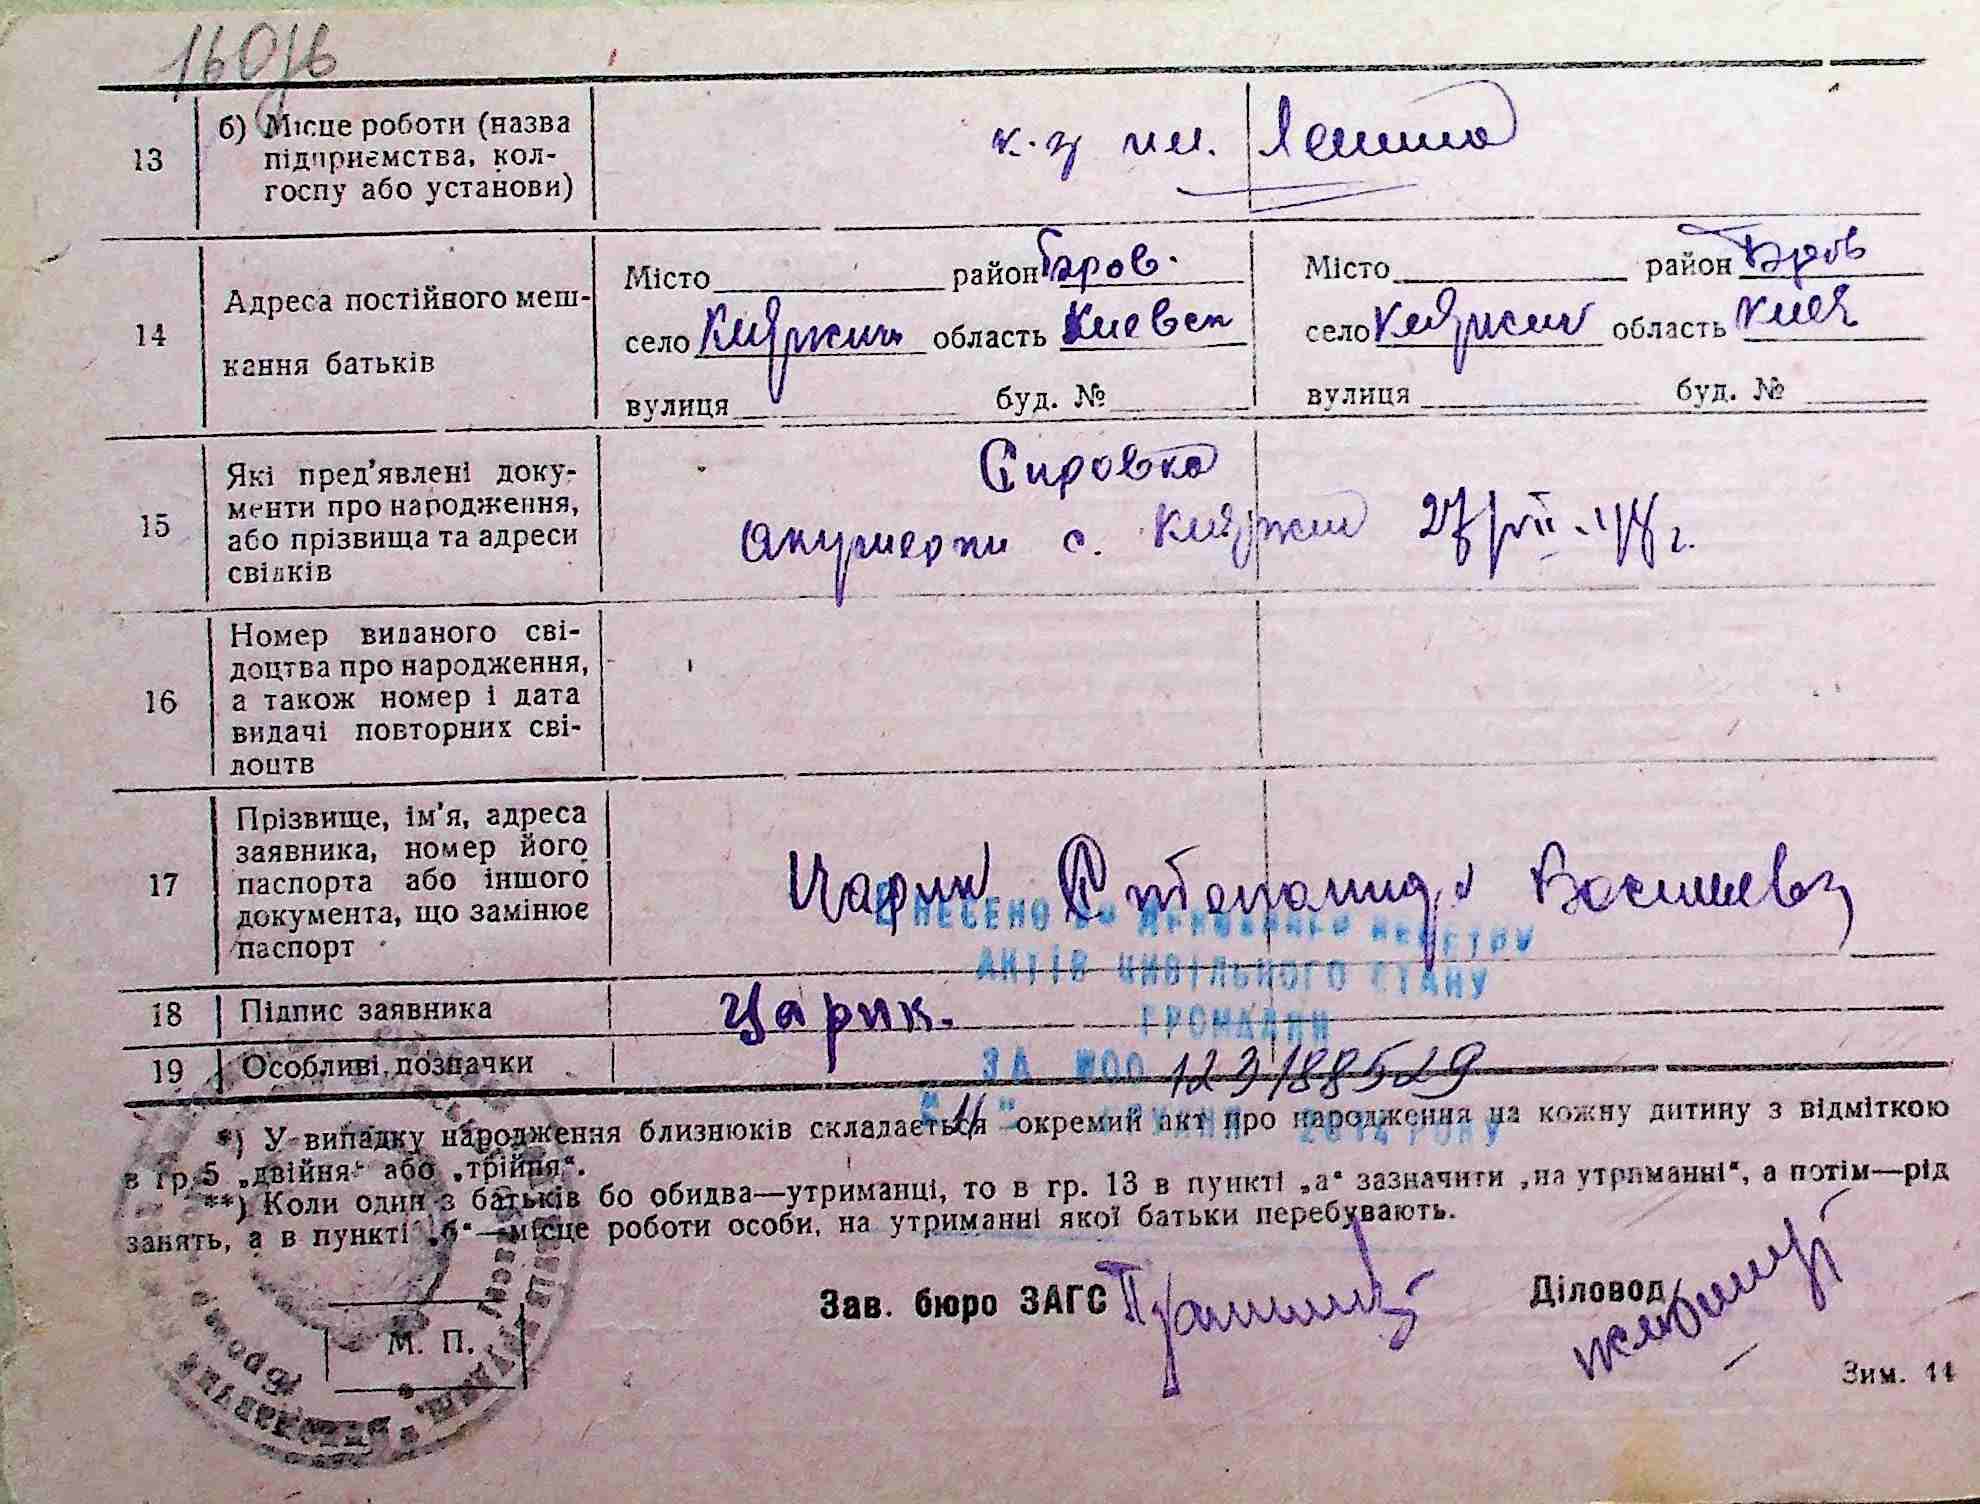 13 б) Місце роботи (назва
підприємства, кол-
госпу або установи)
к-з им. Ленина
14 Адреса постійного меш-
кання батьків
Місто район Бров.
село Княжичи область Киевск
вулиця буд. №
Місто район Бров
село Княжичи область Киев
вулиця буд. №
15 Які пред'явлені доку-
менти про народження,
або прізвища та адреси
свідків
Справка
акушерки с. Княжичи 27/VII-48 г.
16 Номер виданого сві-
доцтва про народження,
а також номер і дата
видачі повторних сві-
доцтв
17 Прізвище, ім'я, адреса
заявника, номер його
паспорта або іншого
документа, що замінює
паспорт
Царик Степанида Васильевн
ВНЕСЕНО ДО ДЕРЖАВНОГО РЕЄСТРУ
АКТІВ ЦИВІЛЬНОГО СТАНУ
ГРОМАДЯН
18 Підпис заявника
Царик.
19 Особливі позначки
ЗА №00 123188529
*) У випадку народження близнюків складається окремий акт про народження на кожну дитину з відміткою
в гр. 5 „двійня“ або „трійня“.
**) Коли один з батьків бо обидва—утриманці, то в гр. 13 в пункті „а“ зазначити „на утриманні“, а потім—рід
занять, а в пункті „б“—місце роботи особи, на утриманні якої батьки перебувають.
Зав. бюро ЗАГС
Діловод
М. П.
Зим. 11